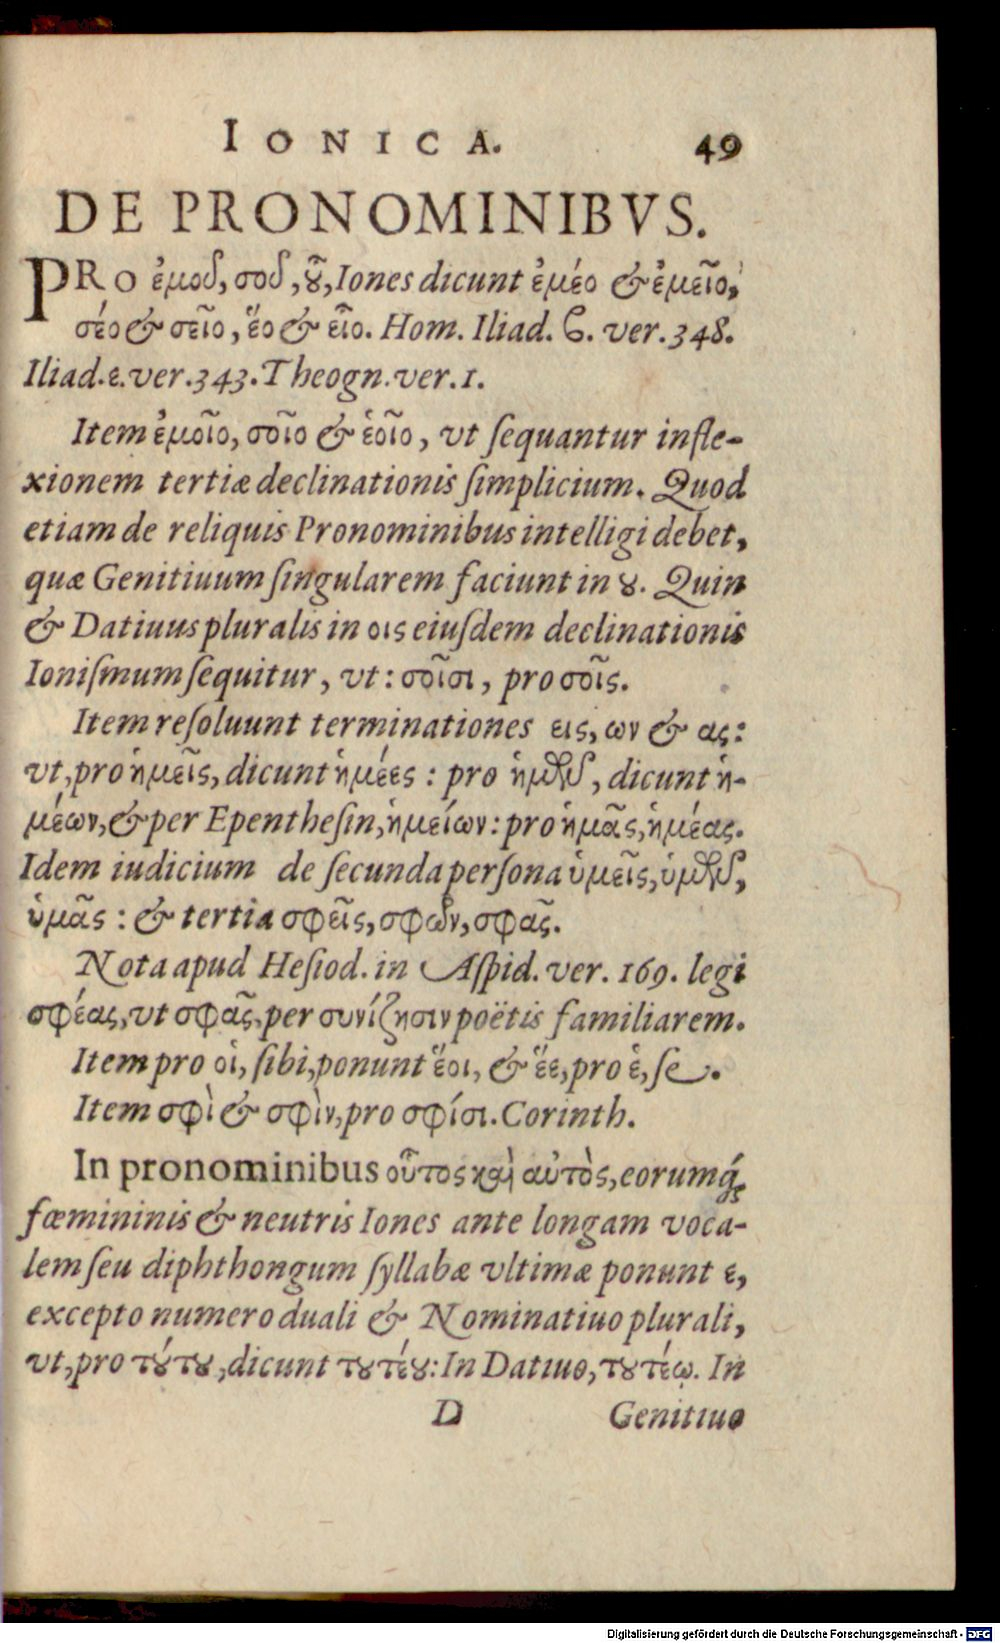 IONICA. 49
DE PRONOMINIBVS.
PRO ἐμοῦ, σοῦ, οὗ, Iones dicunt ἐμέο & ἐμεῖο,
σέο & σεῖο, ἕο & εἷο. Hom. Iliad. ϐ. ver. 348.
Iliad. ε. ver. 343. Theogn. ver. 1.
Item ἐμοῖο, σοῖο & ἑοῖο, vt ſequantur infle-
xionem tertiæ declinationis ſimplicium. Quod
etiam de reliquis Pronominibus intelligi debet,
quæ Genitiuum ſingularem faciunt in ου. Quin
& Datiuus pluralis in οις eiuſdem declinationis
Ioniſmum ſequitur, vt: σοῖσι, pro σοῖς.
Item reſoluunt terminationes εις, ων & ας:
vt, pro ἡμεῖς, dicunt ἡμέες: pro ἡμῶν, dicunt ἡ-
μέων, & per Epentheſin, ἡμείων: pro ἡμᾶς, ἡμέας.
Idem iudicium de ſecunda perſona ὑμεῖς, ὑμῶν,
ὑμᾶς: & tertia σφεῖς, σφῶν, σφᾶς.
Nota apud Heſiod. in Aſpid. ver. 169. legi
σφέας, vt σφᾶς, per συνίζησιν poëtis familiarem.
Item pro οἱ, ſibi, ponunt ἕοι, & ἕε, pro ἑ, ſe.
Item σφὶ & σφὶν, pro σφίσι. Corinth.
In pronominibus οὗτος καὶ αὐτὸς, eorumq́;
fœmininis & neutris Iones ante longam voca-
lem ſeu diphthongum ſyllabæ vltimæ ponunt ε,
excepto numero duali & Nominatiuo plurali,
vt, pro τούτου, dicunt τουτέου: In Datiuo, τουτέῳ. In
D Genitiuo
Digitalisierung gefördert durch die Deutsche Forschungsgemeinschaft - DFG